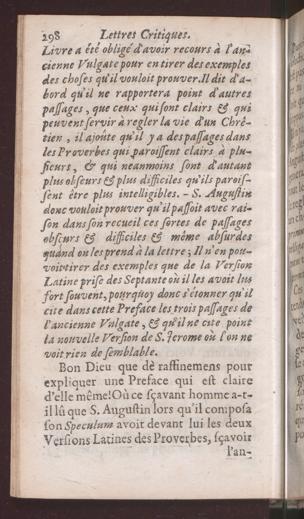 298 Lettres Critiques.
Livre a été obligé d'avoir recours à l'an-
cienne Vulgate pour en tirer des exemples
des choses qu'il vouloit prouver. Il dit d'a-
bord qu'il ne rapportera point d'autres
passages, que ceux qui sont clairs & qui
peuvent servir à regler la vie d'un Chrê-
tien, il ajoûte qu'il y a des passages dans
les Proverbes qui paroissent clairs à plu-
sieurs, & qui neanmoins sont d'autant
plus obscurs & plus difficiles qu'ils parois-
sent être plus intelligibles. - S. Augustin
donc vouloit prouver qu'il passoit avec rai-
son dans son recueil ces sortes de passages
obscurs & difficiles & même absurdes
quand on les prend à la lettre; Il n'en pou-
voit tirer des exemples que de la Version
Latine prise des Septante où il les avoit lus
fort souvent, pourquoy donc s'étonner qu'il
cite dans cette Preface les trois passages de
l'ancienne Vulgate, & qu'il ne cite point
la nouvelle Version de S. Jerome où l'on ne
voit rien de semblable.
Bon Dieu que de raffinemens pour
expliquer une Preface qui est claire
d'elle même! Où ce sçavant homme a-t-
il lû que S. Augustin lors qu'il composa
son Speculum avoit devant lui les deux
Versions Latines des Proverbes, sçavoir
l'an-